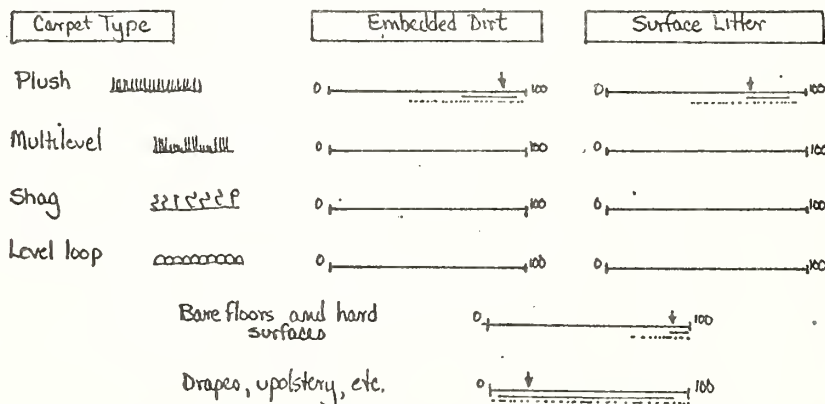 Carpet Type Embedded Dirt Surface Litter
Plush 0 100 0 100
Multilevel 0 100 0 100
Shag 0 100 0 100
Level loop 0 100 0 100
Bare floors and hard 0 100
surfaces
Drapes, upolstery, etc. 0 100